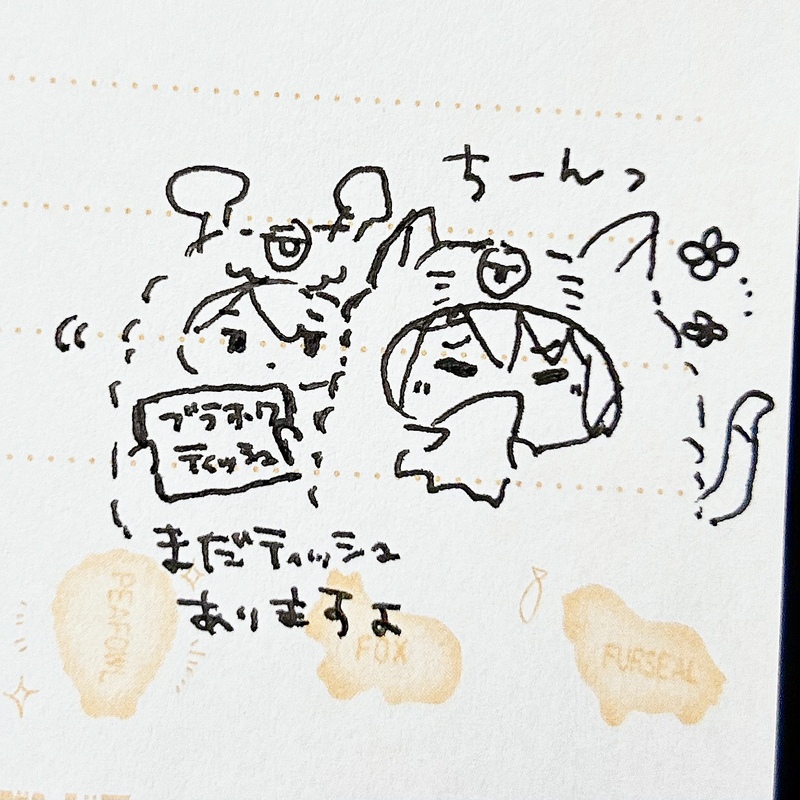 ちーんっ
ブラホワ
ティッシュ
まだティッシュ
ありますよ
PEAFOWL
FOX
FURSEAL